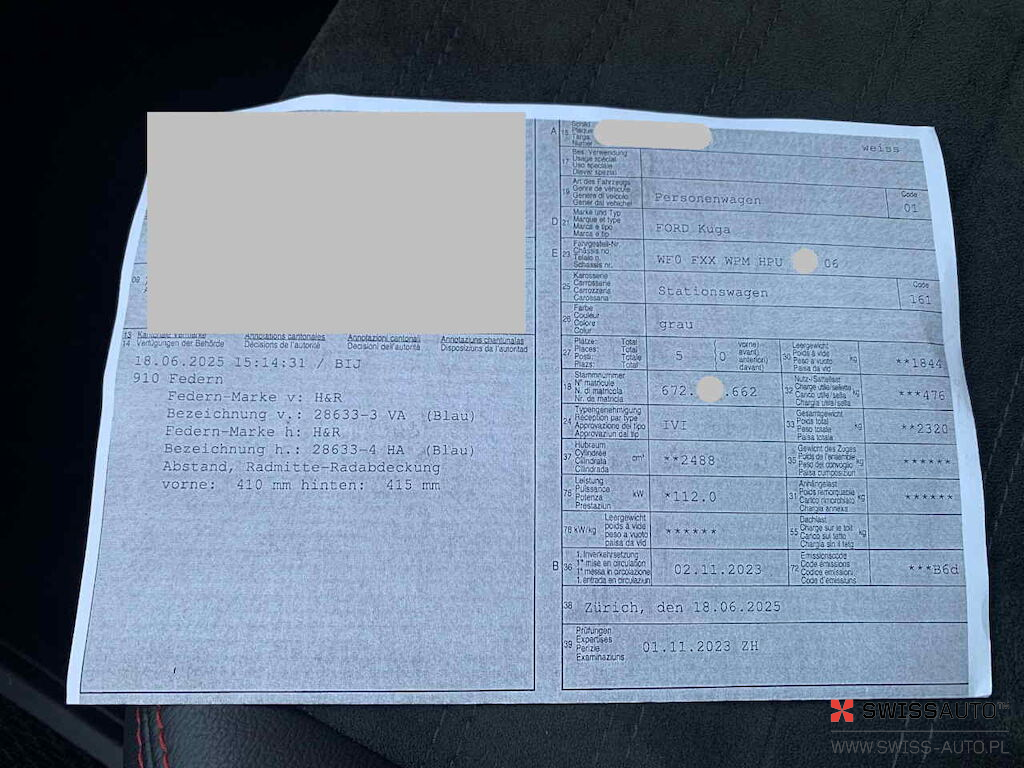 13 Kantonale Vermerke Annotations cantonales Annotazioni cantonali Annotaziuns chantunalas
14 Verfügungen der Behörde Décisions de l'autorité Decisioni dell'autorità Disposiziuns da l'autoritad
18.06.2025 15:14:31 / BIJ
910 Federn
Federn-Marke v: H&R
Bezeichnung v.: 28633-3 VA (Blau)
Federn-Marke h: H&R
Bezeichnung h.: 28633-4 HA (Blau)
Abstand, Radmitte-Radabdeckung
vorne: 410 mm hinten: 415 mm
A 15 Schild
Plaque
Targa
Numer
weiss
17 Bes. Verwendung
Usage spécial
Uso speciale
Diever spezial
19 Art des Fahrzeugs
Genre de véhicule
Genere di veicolo
Gener dal vehichel
Personenwagen
Code
01
D 21 Marke und Typ
Marque et type
Marca e tipo
Marca e tip
FORD Kuga
E 23 Fahrgestell-Nr.
Châssis no
Telaio n.
Schassis nr.
WF0 FXX WPM HPU 06
25 Karosserie
Carrosserie
Carrozzeria
Carossaria
Stationswagen
Code
161
26 Farbe
Couleur
Colore
Colur
grau
27 Plätze: Total
Places: Total
Posti: Totale
Plazs: Total
5 (0 vorne)
avant)
anteriori)
davant)
30 Leergewicht
Poids à vide
Peso a vuoto
Paisa da vid
kg
**1844
18 Stammnummer
N° matricule
N. di matricola
Nr. da matricla
672. .662
32 Nutz-/Sattellast
Charge utile/sellette
Carico utile/sella
Chargia utila/sella
kg
***476
24 Typengenehmigung
Réception par type
Approvazione del tipo
Approvaziun dal tip
IVI
33 Gesamtgewicht
Poids total
Peso totale
Paisa totala
kg
**2320
37 Hubraum
Cylindrée
Cilindrata
Cilindrada
cm³
**2488
35 Gewicht des Zuges
Poids de l'ensemble
Peso del convoglio
Paisa cumposiziun
kg
******
76 Leistung
Puissance
Potenza
Prestaziun
kW
*112.0
31 Anhängelast
Poids remorquable
Carico rimorchiato
Chargia annexa
kg
******
78 kW/kg Leergewicht
poids à vide
peso a vuoto
paisa da vid
******
55 Dachlast
Charge sur le toit
Carico sul tetto
Chargia sin il tetg
kg
B 36 1. Inverkehrsetzung
1re mise en circulation
1a messa in circolazione
1. entrada en circulaziun
02.11.2023
72 Emissionscode
Code émissions
Codice emissioni
Code d'emissiuns
***B6d
38 Zürich, den 18.06.2025
39 Prüfungen
Expertises
Perizie
Examinaziuns
01.11.2023 ZH
SWISSAUTO
WWW.SWISS-AUTO.PL